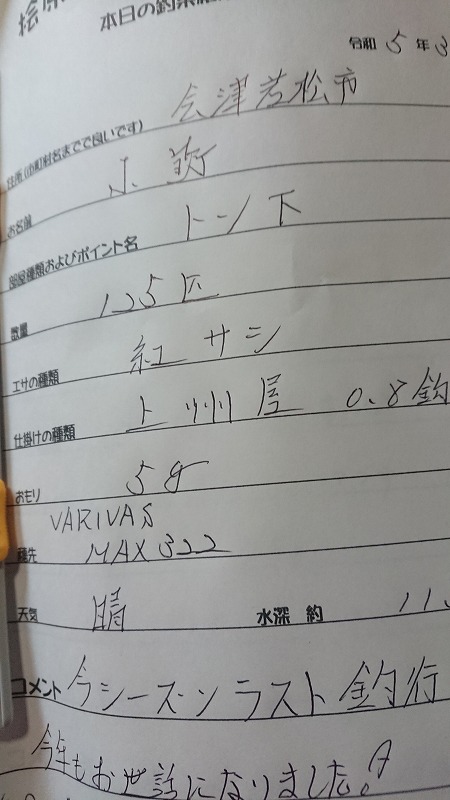 桧原
本日の釣果
令和 5 年 3
住所(市町村名までで良いです) 会津若松市
お名前 小
部屋種類およびポイント名 トン下
数量 125匹
エサの種類 紅サシ
仕掛けの種類 上州屋 0.8釣
おもり 5g
穂先 VARIVAS
MAX322
天気 晴 水深 約 11.
コメント 今シーズンラスト釣行
今年もお世話になりました。